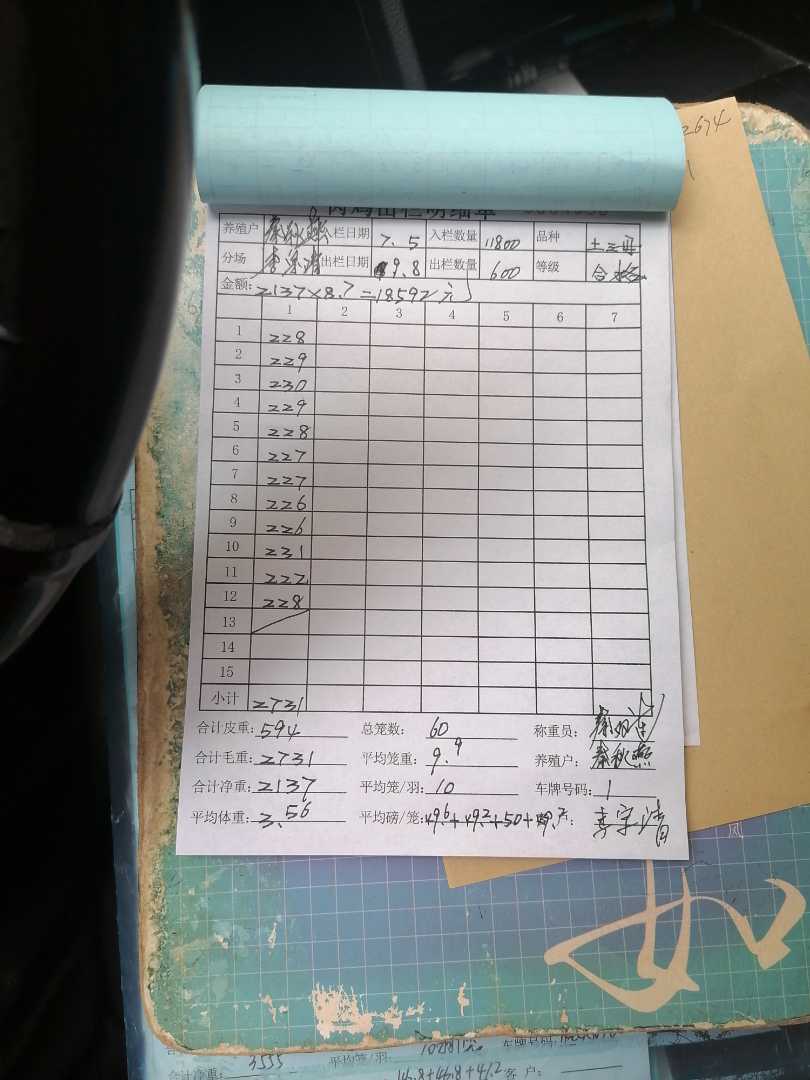 2674
养殖户 秦秋燕 栏日期 7.5 入栏数量 11800 品种 土二
分场 出栏日期 9.8 出栏数量 600 等级 合格
金额: 2137×8.7=18592元
1 2 3 4 5 6 7
1 228
2 229
3 230
4 229
5 228
6 227
7 227
8 226
9 226
10 231
11 222
12 228
13
14
15
小计 2731
合计皮重: 594 总笼数: 60 称重员:
合计毛重: 2731 平均笼重: 9.9 养殖户: 秦秋燕
合计净重: 2137 平均笼/羽: 10 车牌号码: 1
平均体重: 3.56 平均磅/笼: 49.6+49.2+50+49.7:
凤
如
3555 平均笼/羽:
合计净重: 46.8+46.8+47.2 客户: